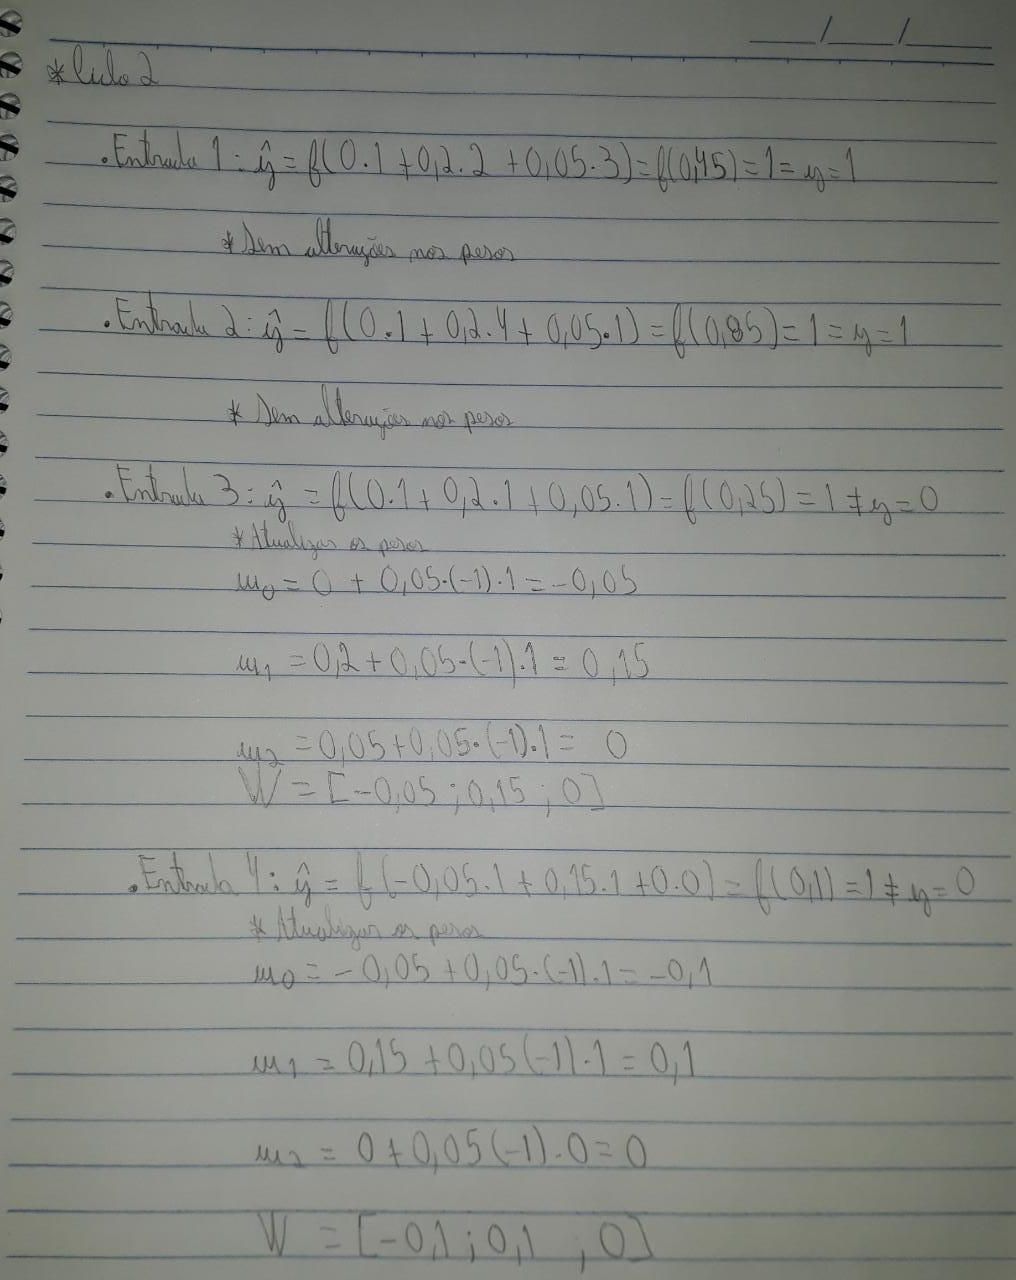 * Ciclo 2
. Entrada 1: ŷ = f(0.1 + 0,2.2 + 0,05.3) = f(0,45) = 1 = y = 1
* Sem alterações nos pesos
. Entrada 2: ŷ = f(0.1 + 0,2.4 + 0,05.1) = f(0,85) = 1 = y = 1
* Sem alterações nos pesos
. Entrada 3: ŷ = f(0.1 + 0,2.1 + 0,05.1) = f(0,25) = 1 ≠ y = 0
* Atualizar os pesos
w₀ = 0 + 0,05.(-1).1 = -0,05
w₁ = 0,2 + 0,05.(-1).1 = 0,15
w₂ = 0,05 + 0,05.(-1).1 = 0
W = [-0,05 ; 0,15 ; 0]
. Entrada 4: ŷ = f(-0,05.1 + 0,15.1 + 0.0) = f(0,1) = 1 ≠ y = 0
* Atualizar os pesos
w₀ = -0,05 + 0,05.(-1).1 = -0,1
w₁ = 0,15 + 0,05(-1).1 = 0,1
w₂ = 0 + 0,05(-1).0 = 0
W = [-0,1 ; 0,1 ; 0]